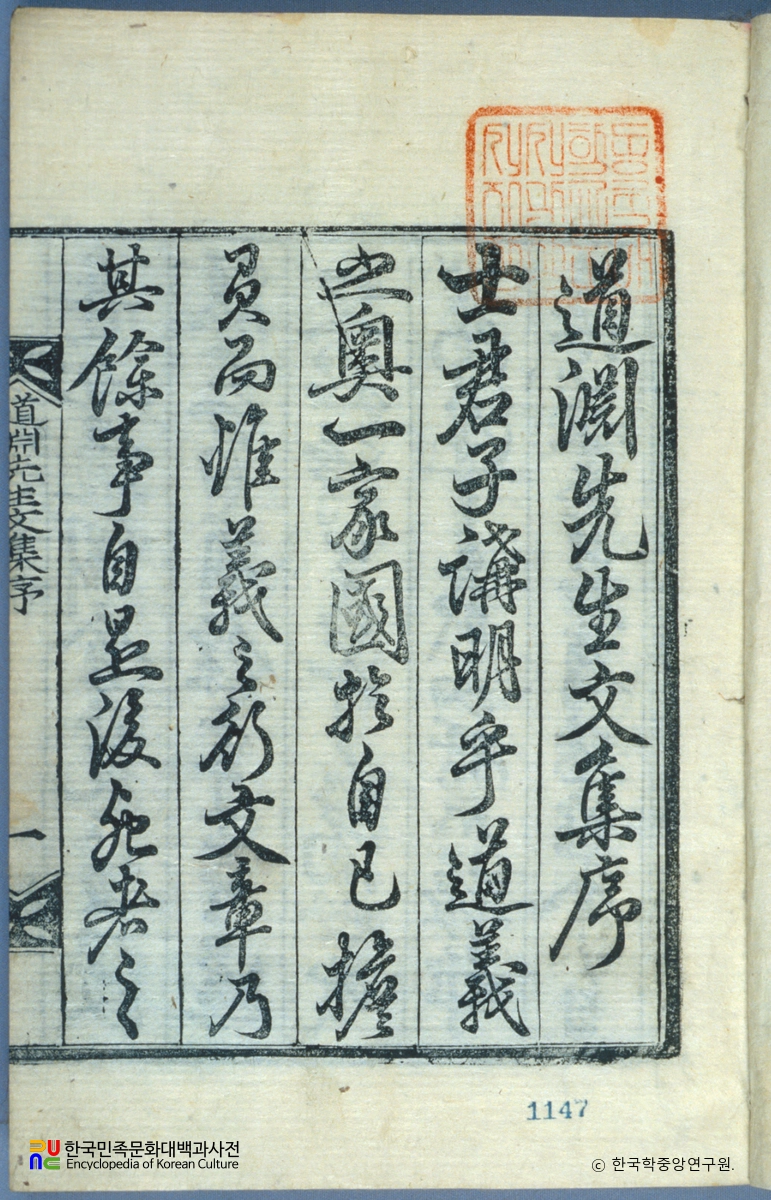 道淵先生文集序
士君子講明乎道義
之奧一家國於自己擔
負而惟義之所文章乃
其餘事自是後死者之
道淵先生文集序
一
1147
한국민족문화대백과사전
Encyclopedia of Korean Culture
© 한국학중앙연구원.